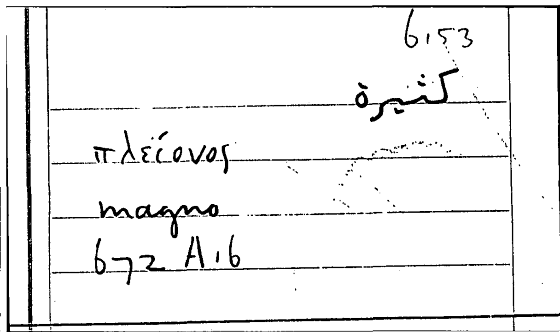 6,53
كثيرة
πλείονος
magno
672 A,6